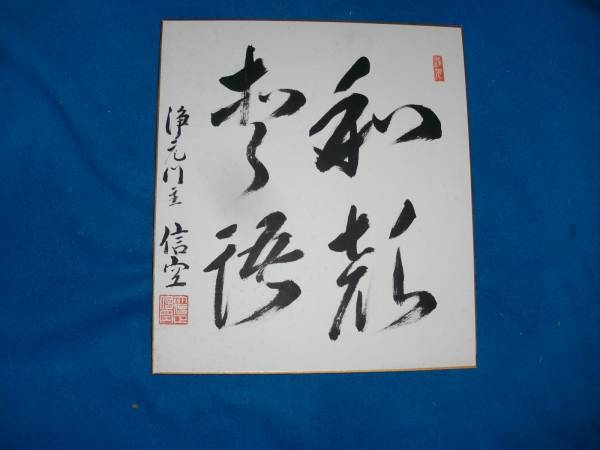 和顔
愛語
浄瓦門主 信空